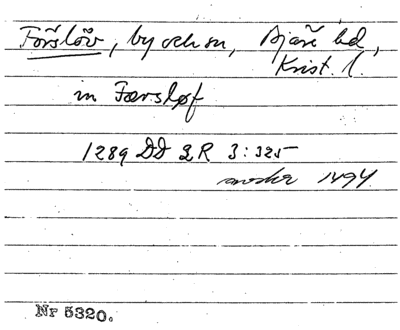 Förslöv, by och sn, Bjäre hd,
Krist. l.
in Færsløf
1289 DD 2R 3:325
avskr 1494
Nr 5320.